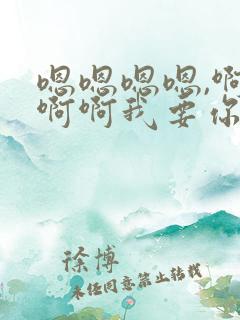 嗯嗯嗯嗯,啊
啊啊我要你
徐博
未经同意禁止转载